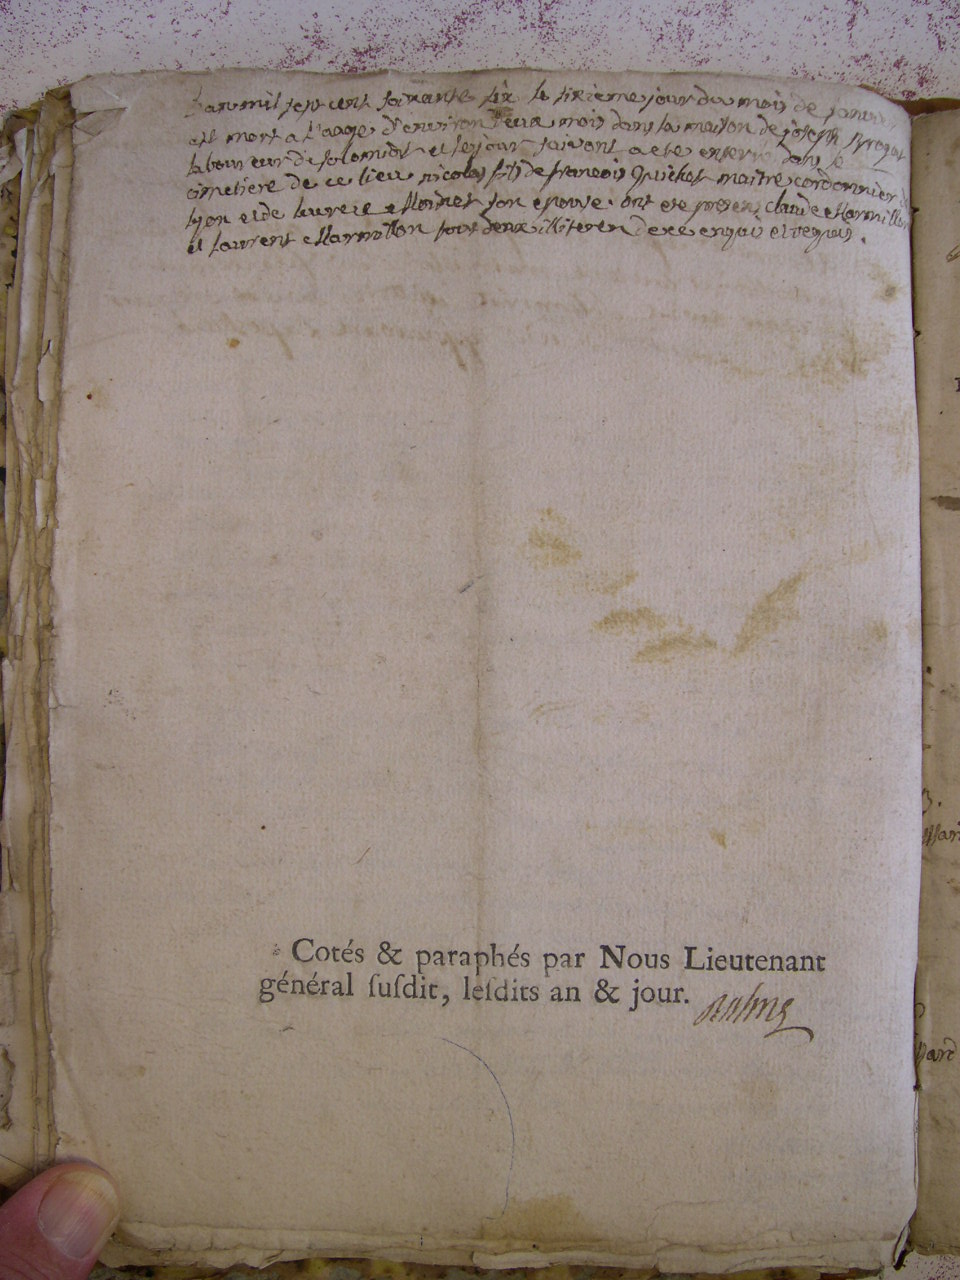 L'an mil sept cent soixante six le sixieme jour du mois de janvier
est mort a l'aage d'environ deux mois dans la maison de joseph
laboureur de et le jour suivant a ete enterré dans le
cimetiere de ce lieu nicolas fils de francois Quichet maitre cordonnier
lyon et de son epouse. ont ete presens claude Marmillon
et laurent Marmillon tous deux illiteres de ce enquis et requis.
Cotés & paraphés par Nous Lieutenant
général ſuſdit, leſdits an & jour.